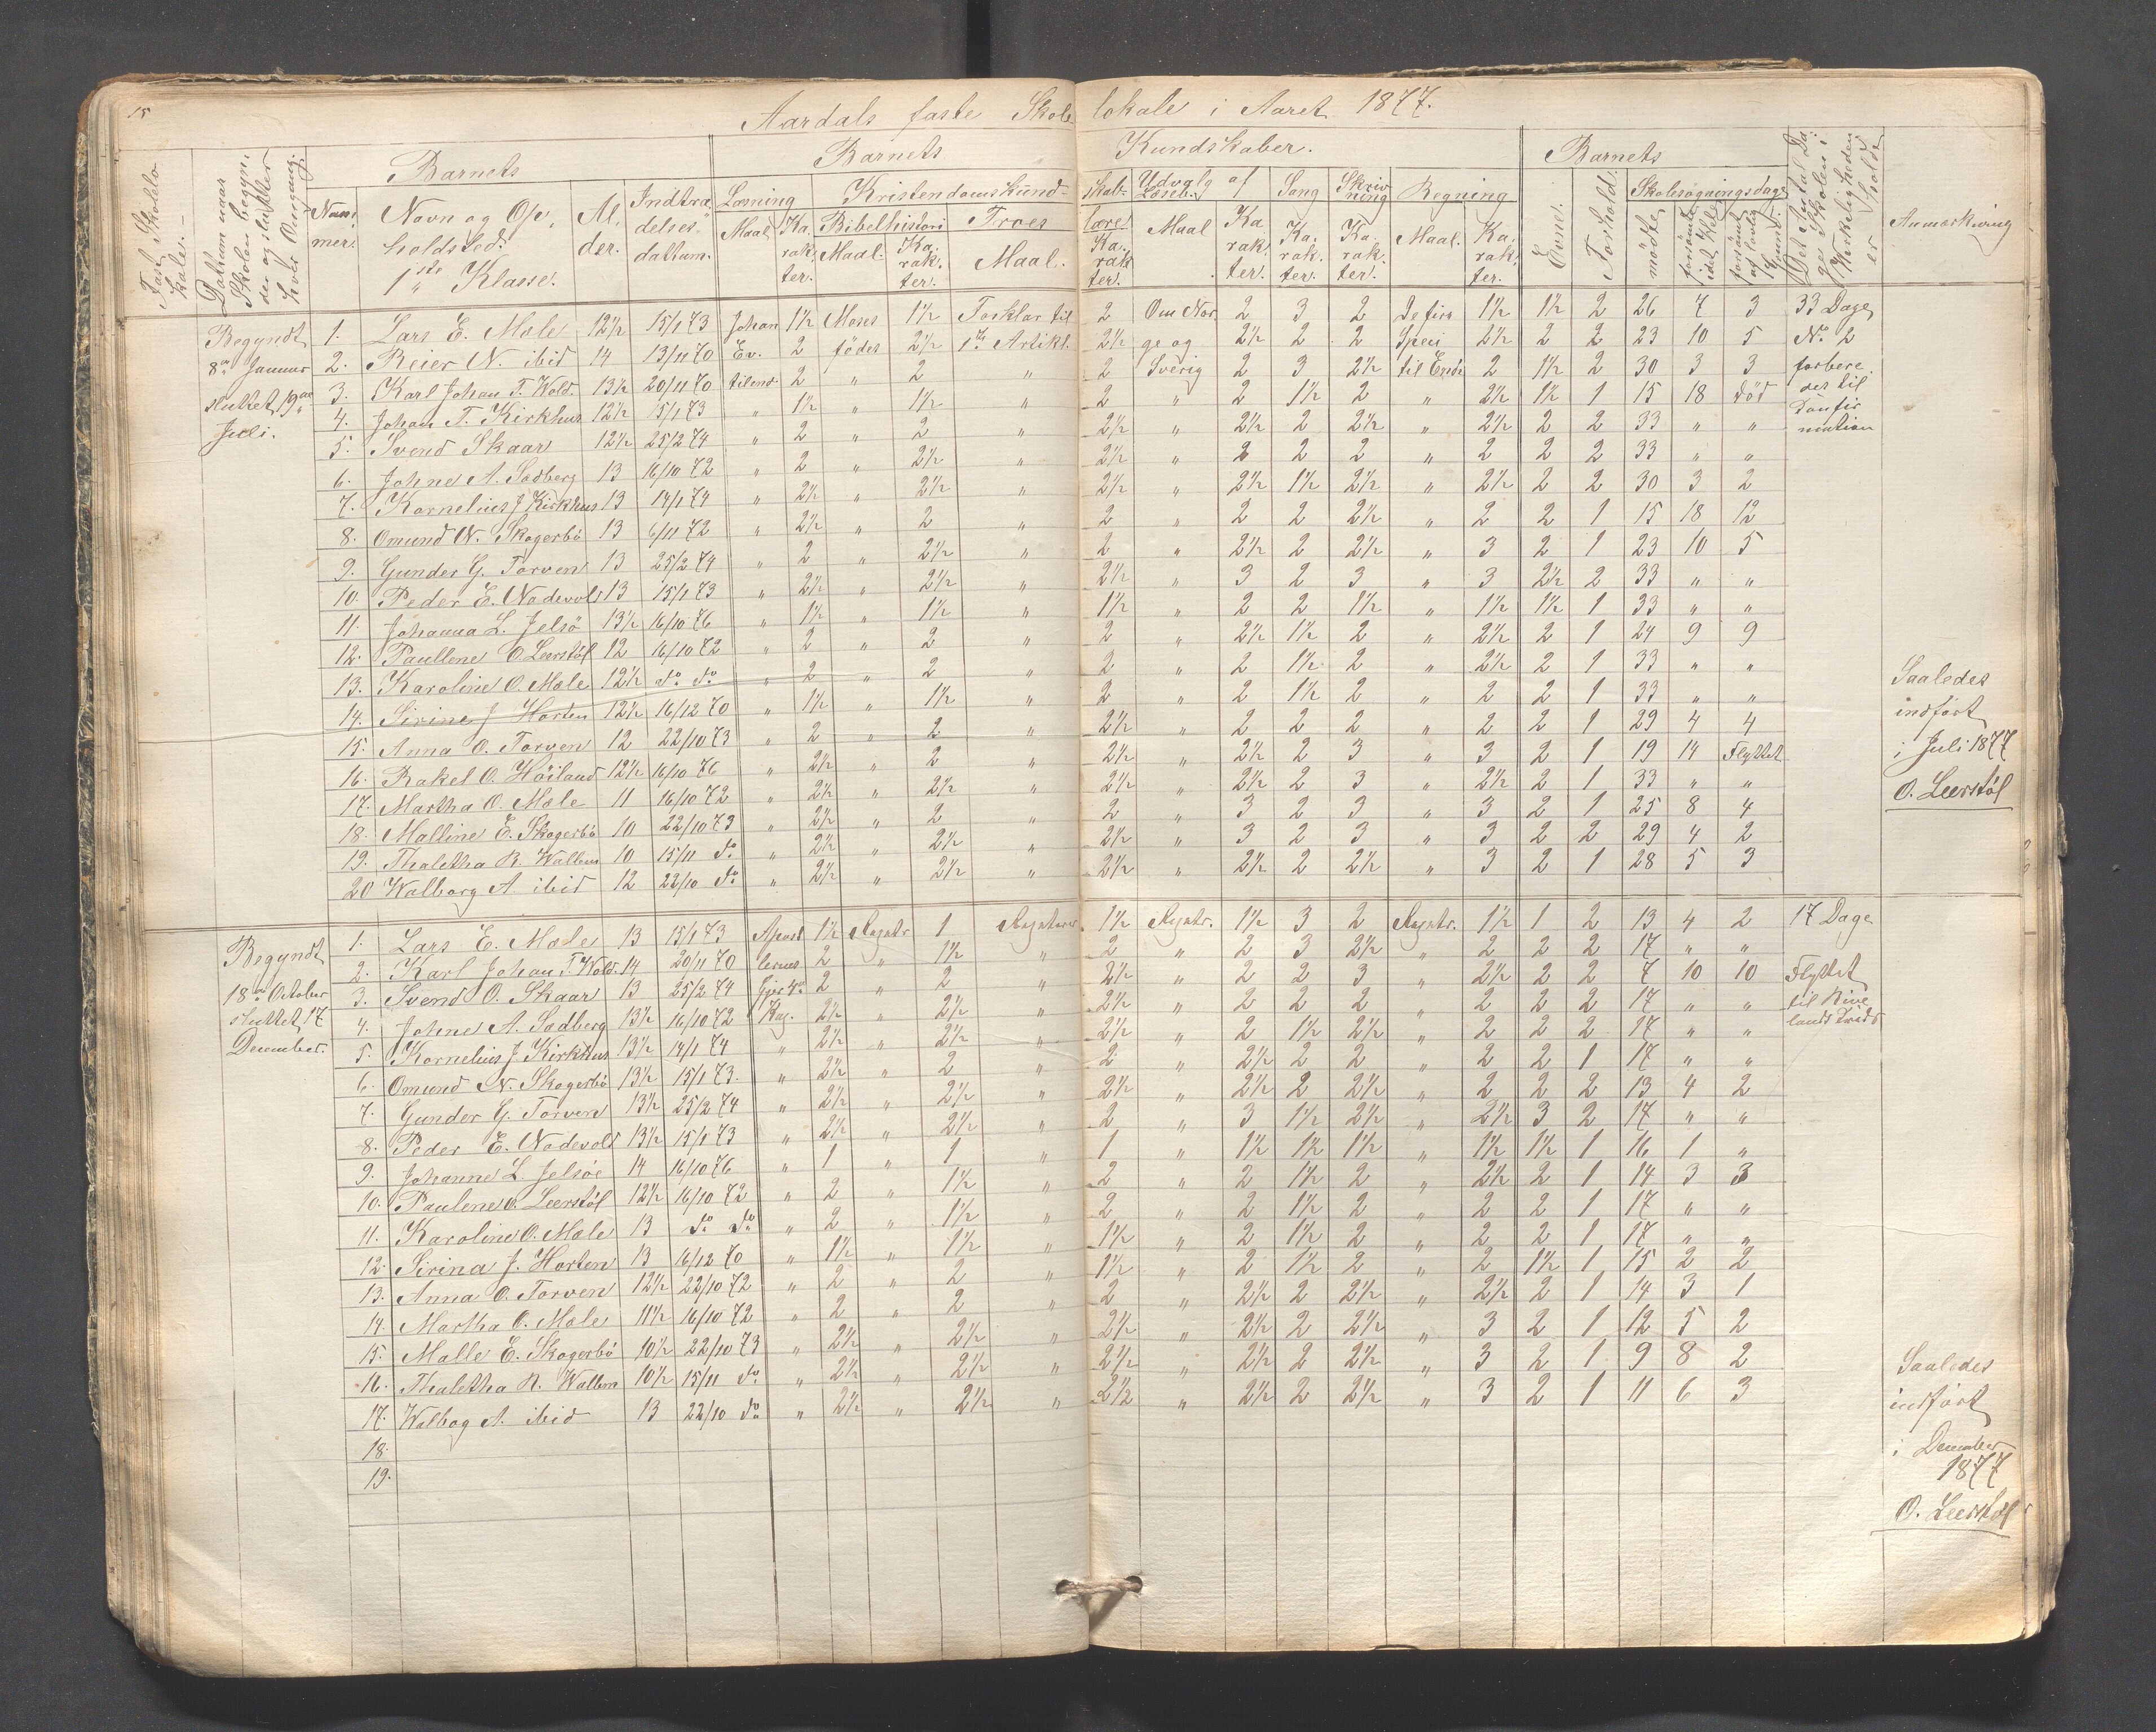 15
Aardals faste Skolelokale i Aaret 1877.
Fast Skolelokale.
Datum naar Skolen begynder og slutter hver Omgang.
Barnets
Nummer.
Navn og Opholdsted.
1ste Klasse.
Alder.
Indtrædelsesdatum.
Barnets Kundskaber.
Læsning
Maal
Karakter.
Kristendomskundskab
Bibelhistori
Maal.
Karakter.
Troeslære
Maal.
Karakter
Udvalg af Læseb.
Maal
Karakter.
Sang
Karakter.
Skrivning
Karakter.
Regning
Maal.
Karakter.
Barnets
Evne.
Forhold.
Skolesøgningsdage
mødte
forsømte i det Hele
forsømt af lovlig Grund.
Det Antal Dage Skolen i Virkeligheden er holdt
Anmærkning
Begyndt 8de Januar sluttet 19de Juli.
1. Lars E. Mæle 12½ 15/1 73 Johan 1½ Moses 1½ Forklar til 2 Om Nor 2 3 2 De fire 1½ 1½ 2 26 7 3 33 Dage
2. Reier N. ibid 14 13/11 70 Ev. 2 fødes 2½ 1ste Artikl. 2½ ge og 2½ 2 2 Speci 2½ 2 2 23 10 5 No 2
3. Karl Johan T. Wold. 13½ 20/11 70 til end. 2 " 2 " 2 Sverig 2 3 2½ til Ende 2 1½ 2 30 3 3 forbere
4. Johan T. Kirkhus 12½ 15/1 73 " 1½ " 1½ " 2 " 2 1½ 2 " 2½ 1½ 1 15 18 død des til
5. Svend Skaar 12½ 25/2 74 " 2 " 2 " 2½ " 2½ 2 2½ " 2½ 2 2 33 " " Konfir
mation
6. Johne A. Sadberg 13 16/10 72 " 2 " 2½ " 2½ " 2 2 2 " 2 2 2 33 " "
7. Kornelius J Kirkhus 13 14/1 74 " 2½ " 2½ " 2½ " 2½ 1½ 2½ " 2½ 2 2 30 3 2
8. Omund N. Skogerbø 13 6/11 72 " 2½ " 2 " 2 " 2 2 2½ " 2 2 1 15 18 12
9. Gunder G. Torven 13 25/2 74 " 2 " 2½ " 2 " 2½ 2 2½ " 3 2 1 23 10 5
10. Peder E. Nadevold 13 15/1 73 " 2½ " 2½ " 2½ " 3 2 3 " 3 2½ 2 33 " "
11. Johanna L. Jelsø 13½ 16/10 76 " 1½ " 1½ " 1½ " 2 2 1½ " 1½ 1½ 1 33 " "
12. Paullene O. Leerstøl 12 16/10 72 " 2 " 2 " 2 " 2½ 1½ 2 " 2½ 2 1 24 9 9
13. Karoline O. Mæle 12½ do. do. " 2 " 2 " 2 " 2 1½ 2 " 2½ 2 1 33 " "
14. Sirine J Horten 12½ 16/12 70 " 1½ " 1½ " 2 " 2 1½ 2 " 2 2 1 33 " "
15. Anna O. Torven 12 22/10 73 " 2 " 2 " 2½ " 2 2 2 " 2 2 1 29 4 4
16. Rakel O. Höiland 12½ 16/10 76 " 2½ " 2 " 2½ " 2½ 2 3 " 3 2 1 19 14 Flyttet
17. Martha O. Mæle 11 16/10 72 " 2½ " 2½ " 2½ " 2½ 2 3 " 2½ 2 1 33 " "
18. Malline E. Skogerbø 10 22/10 73 " 2½ " 2 " 2 " 3 2 3 " 3 2 1 25 8 4
19. Thaletha R. Wallem 10 15/11 do. " 2½ " 2½ " 2½ " 3 2 3 " 3 2 2 29 4 2
20 Walborg A ibid 12 22/10 do. " 2½ " 2½ " 2½ " 2½ 2 2½ " 3 2 1 28 5 3
Saaledes
indført
i Juli 1877
O. Leerstøl
Begyndt 18de October sluttet 17 December.
1. Lars E. Mæle 13 15/1 73 Apost 1½ Repetr. 1 Repeteres 1½ Repetr. 1½ 3 2 Repetr. 1½ 1 2 13 4 2 17 Dage
2. Karl Johan T. Wold. 14 20/11 70 lernes 2 " 1½ " 2 " 2 3 2½ " 2 2 2 17 " "
3. Svend O. Skaar 13 25/2 74 Gjer 4de 2 " 2 " 2½ " 2 2 3 " 2½ 2 2 7 10 10 Flyttet
4. Johne A. Sadberg 13½ 16/10 72 Kap. 2½ " 2½ " 2½ " 2 2 2 " 2 2 2 17 " " til Nive
5. Kornelius J. Kirkhus 13½ 14/1 74 " 2½ " 2½ " 2½ " 2 1½ 2½ " 2 2 2 17 " " lands Kreds
6. Omund N. Skogerbø 13½ 15/1 73. " 2½ " 2 " 2 " 2½ 2 2 " 2 2 1 17 " "
7. Gunder G. Torven 13½ 25/2 74 " 2½ " 2½ " 2½ " 2½ 2 2½ " 2 2 2 13 4 2
8. Peder E. Nadevold 13½ 15/1 73 " 2½ " 2½ " 2 " 3 1½ 2½ " 2½ 3 2 17 " "
9. Johanne L. Jelsøe 14 16/10 76 " 1 " 1 " 1 " 1½ 1½ 1½ " 1½ 1½ 1 16 1 "
10. Paulene O. Leerstøl 12½ 16/10 72 " 2 " 1½ " 2 " 2 1½ 2 " 2½ 2 1 14 3 3
11. Karoline O. Mæle 13 do. do. " 2 " 1½ " 2 " 2 1½ 2 " 2 2 1 17 " "
12. Sirina J. Horten 13 16/12 70 " 1½ " 1½ " 1½ " 2 1½ 2 " 2 2 1 17 " "
13. Anna O. Torven 12½ 22/10 72 " 2 " 2 " 1½ " 2 1½ 2 " 2 1½ 1 15 2 2
14. Martha O. Mæle 11½ 16/10 72 " 2 " 2 " 2 " 2½ 2 2½ " 2½ 2 1 14 3 1
15. Malle E. Skogerbø 10½ 22/10 73 " 2½ " 2½ " 2½ " 2½ 2 2½ " 3 2 1 12 5 2
16. Thaletha R. Wallem 10½ 15/11 do. " 2½ " 2½ " 2½ " 2½ 2 2½ " 3 2 1 9 8 2
17. Walbog A. ibid 13 22/10 do. " 2½ " 2½ " 2½ " 2½ 2 2½ " 3 2 1 11 6 3
18.
19.
Saaledes
indført
i December
1877
O. Leerstøl